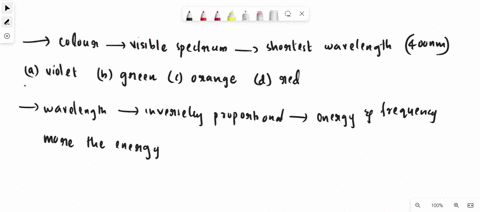 → colour → visible spectrum → shortest wavelength (400nm)
(a) violet (b) green (c) orange (d) red
→ wavelength → inversely proportional → energy & frequency
more the energy
100%